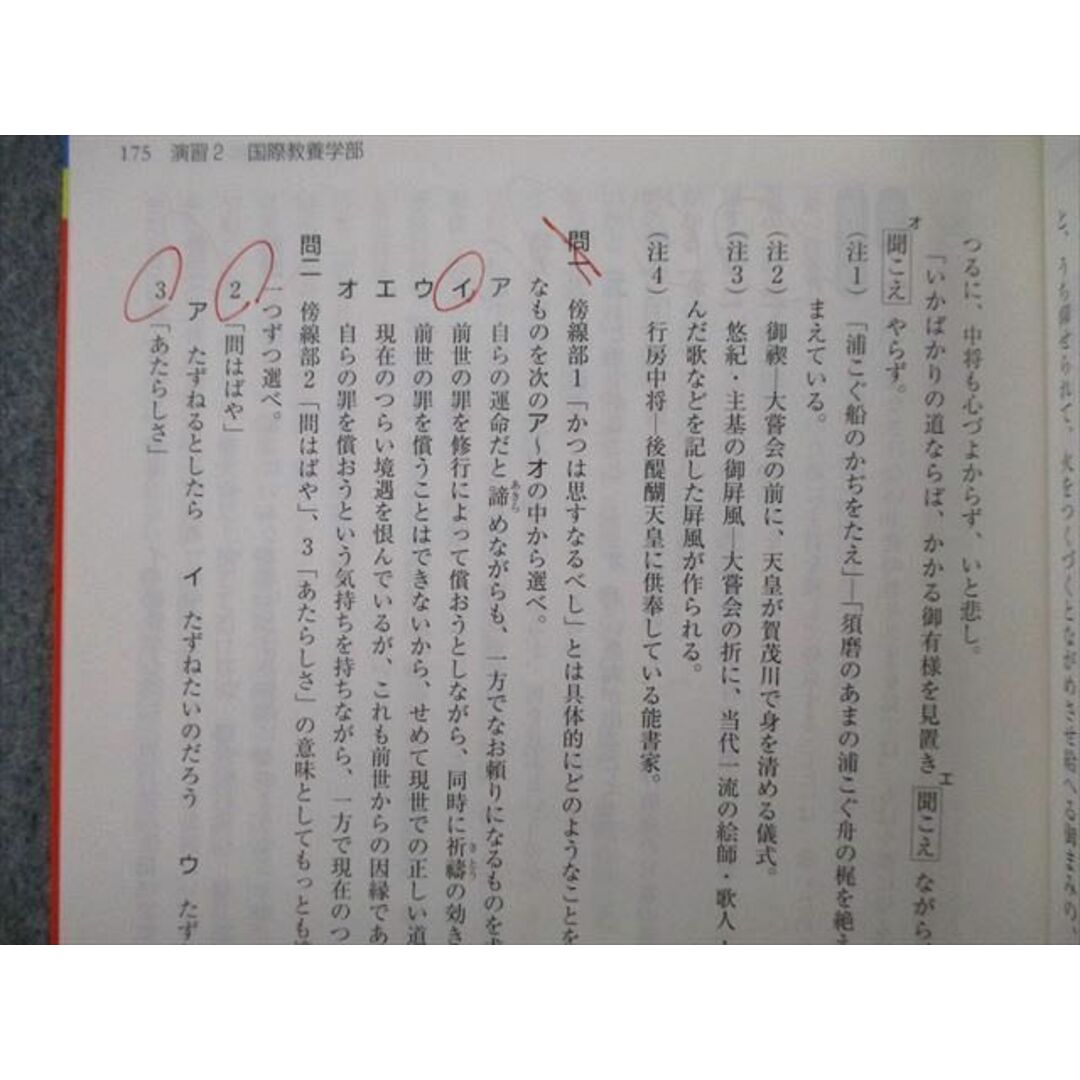 175 演習2 国際教養学部
つるに、中将も心づよからず、いと悲し。
「いかばかりの道ならば、かかる御有様を見置き
エ
聞こえ
ながら、
オ
聞こえ
やらず。
(注1) 「浦こぐ船のかぢをたえ」―「須磨のあまの浦こぐ舟の梶を絶え
まえている。
(注2) 御禊―大嘗会の前に、天皇が賀茂川で身を清める儀式。
(注3) 悠紀・主基の御屏風―大嘗会の折に、当代一流の絵師・歌人・
んだ歌などを記した屏風が作られる。
(注4) 行房中将―後醍醐天皇に供奉している能書家。
問一 傍線部1「かつは思すなるべし」とは具体的にどのようなことを
なものを次のア～オの中から選べ。
ア 自らの運命だと諦めながらも、一方でなお頼りになるものを
あきら
イ 前世の罪を修行によって償おうとしながら、同時に祈禱の効き
きとう
ウ 前世の罪を償うことはできないから、せめて現世での正しい道
エ 現在のつらい境遇を恨んでいるが、これも前世からの因縁であ
オ 自らの罪を償おうという気持ちを持ちながら、一方で現在のつ
問二 傍線部2「問はばや」、3「あたらしさ」の意味としてもっとも
一つずつ選べ。
2 「問はばや」
ア たずねるとしたら イ たずねたいのだろう ウ たず
3 「あたらしさ」